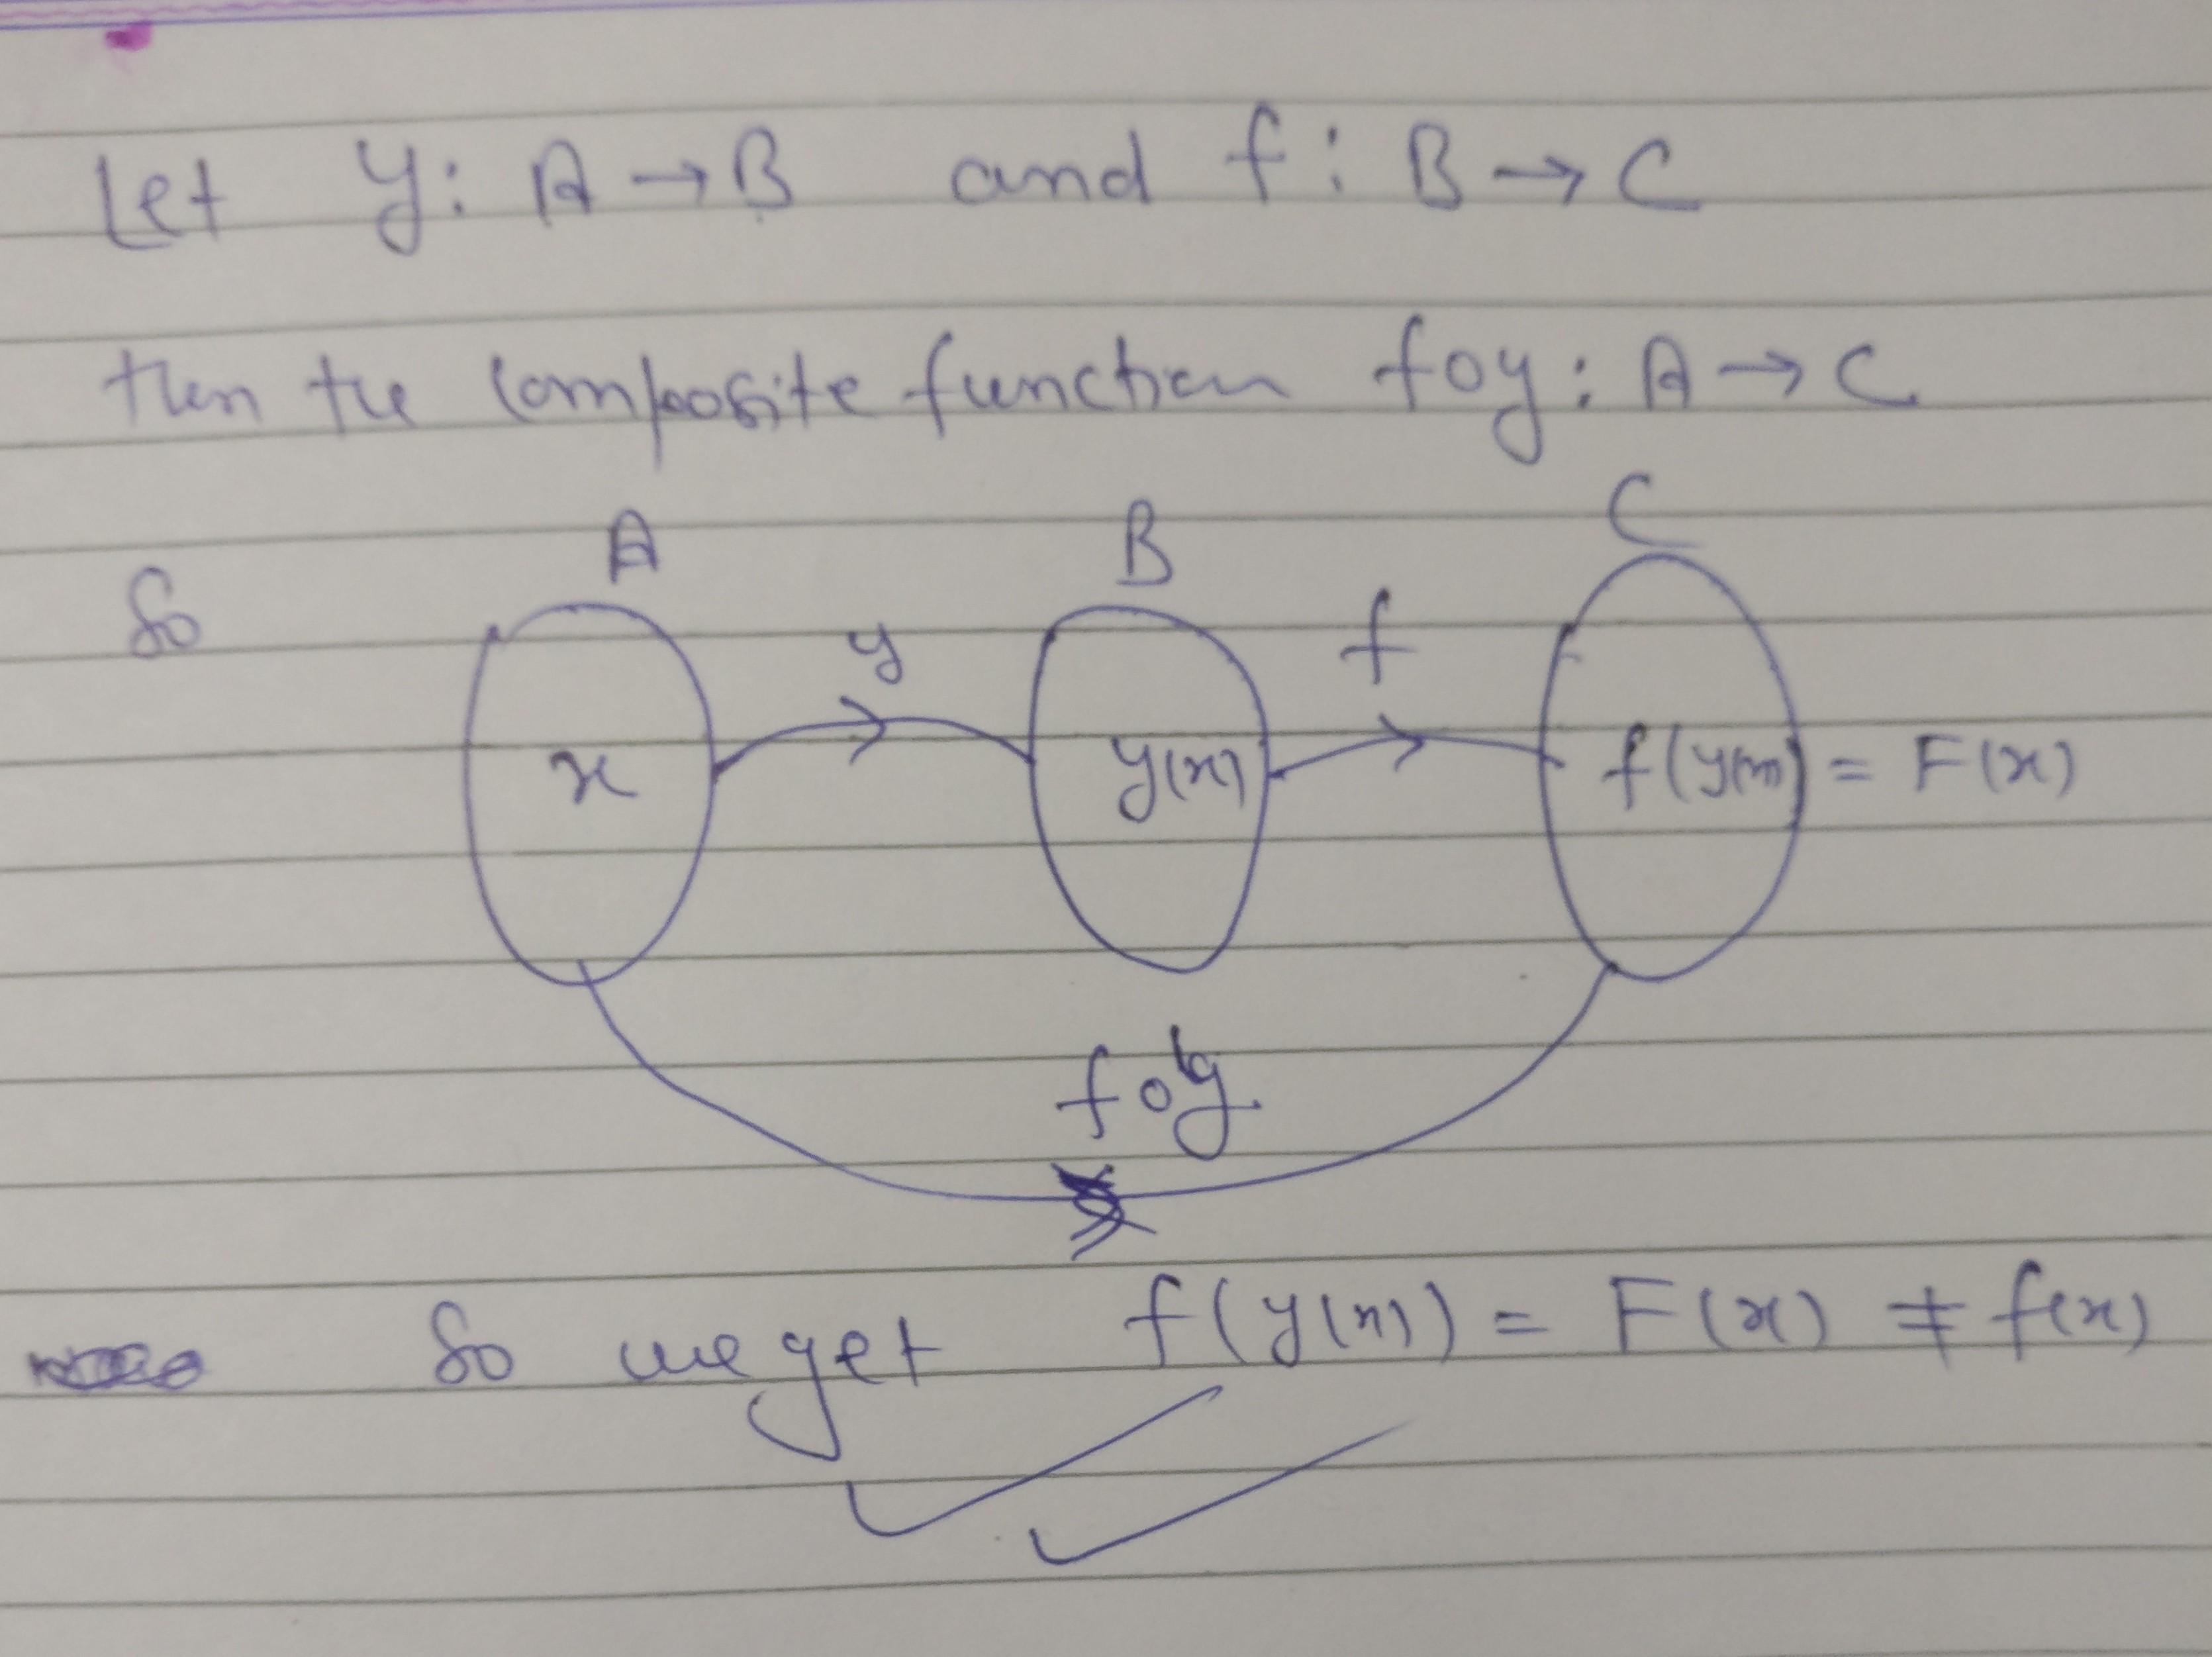 Let y: A → B and f: B → C
then the composite function foy: A → C
A B C
So
y f
x y(x) f(y(x)) = F(x)
foy
So we get f(y(x)) = F(x) ≠ f(x)